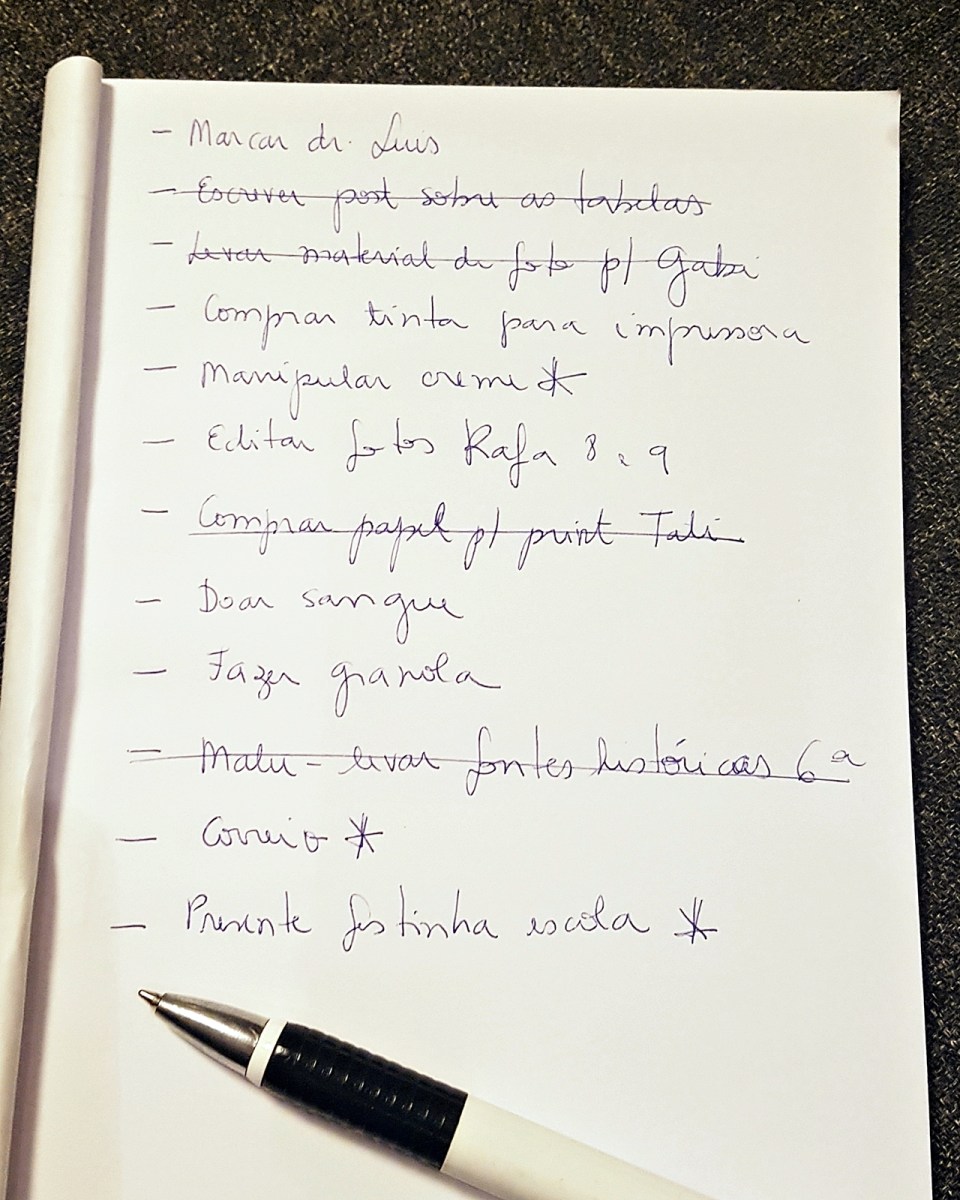 - Marcar dr. Luis
- Escrever post sobre as tabelas
- Levar material de foto p/ Gabi
- Comprar tinta para impressora
- Manipular creme *
- Editar fotos Rafa 8 e 9
- Comprar papel p/ print Tati
- Doar sangue
- Fazer granola
- Malu - levar fontes históricas 6ª
- Correio *
- Presente festinha escola *